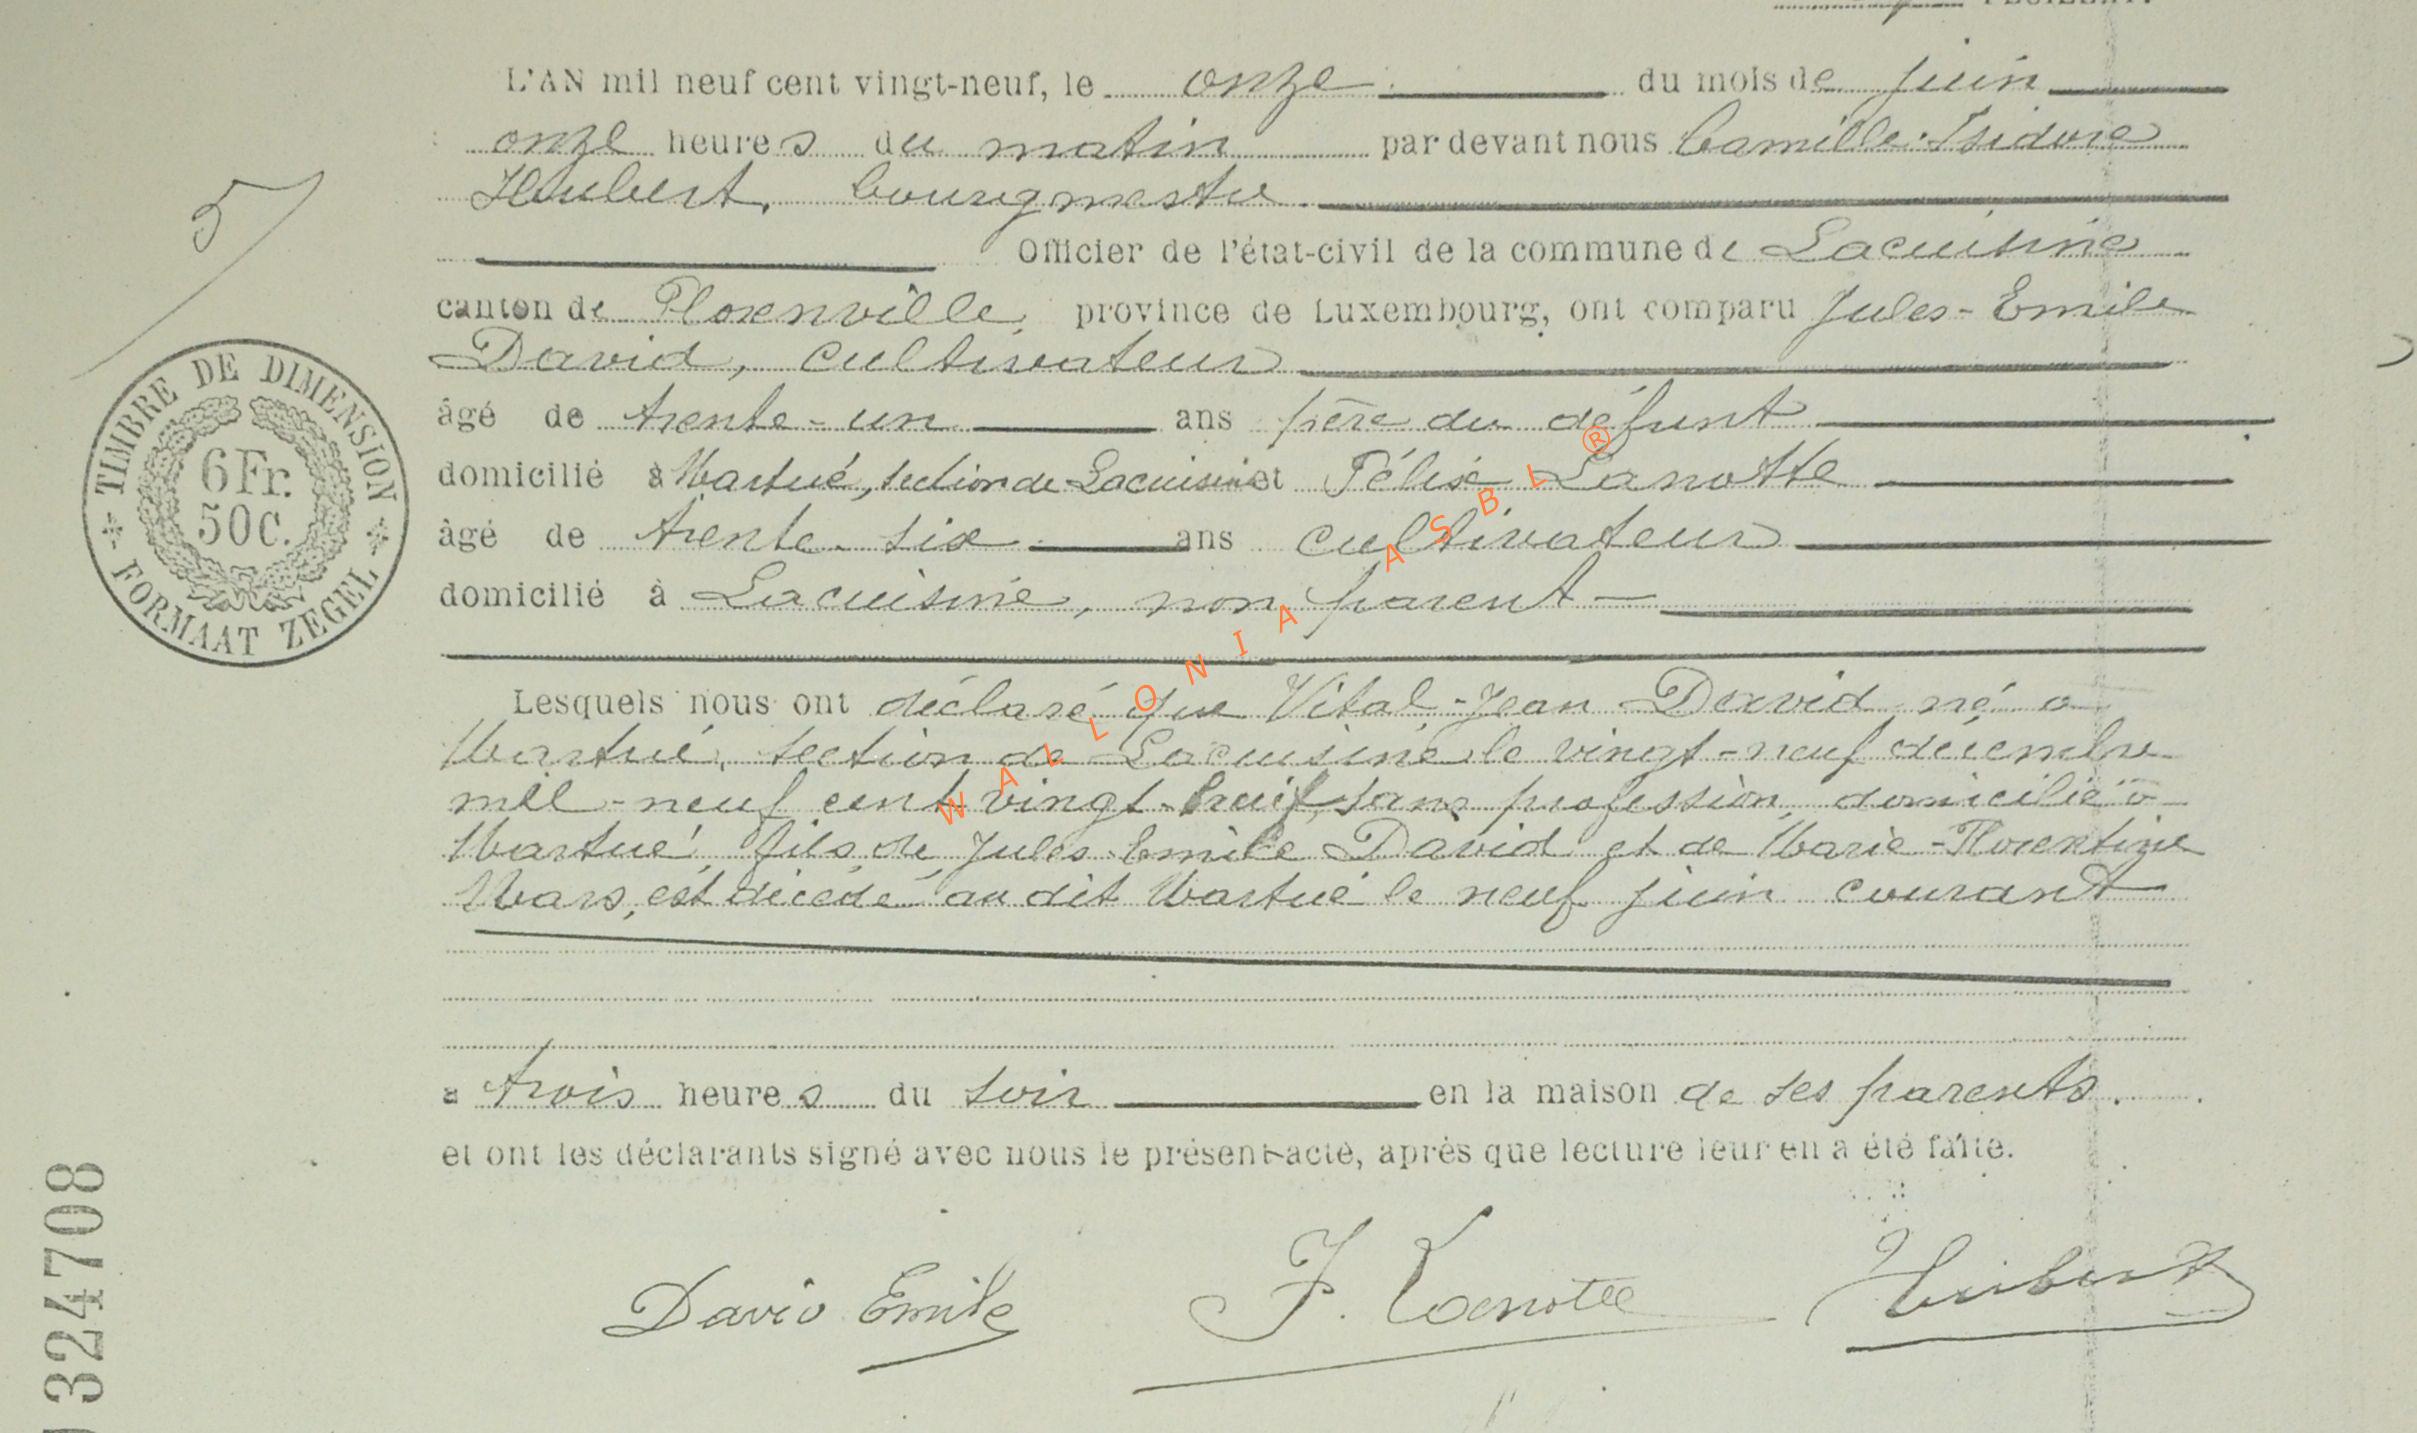 FEUILLET.
L'AN mil neuf cent vingt-neuf, le onze du mois de juin
onze heures du matin par devant nous Camille-Isidore
Hubert, bourgmestre.
Officier de l'état-civil de la commune de Lacuisine
canton de Florenville, province de Luxembourg, ont comparu Jules-Emile
David, cultivateur
âgé de trente-un ans père du défunt
domicilié à Martué, section de Lacuisine et Félix Lanotte
âgé de trente-six ans cultivateur
domicilié à Lacuisine, non parent
Lesquels nous ont déclaré que Vital-Jean David né à
Martué, section de Lacuisine le vingt-neuf décembre
mil-neuf cent vingt-huit, sans profession, domicilié à
Martué, fils de Jules-Emile David et de Marie-Florentine
Mars, est décédé au dit Martué le neuf juin courant
à trois heures du soir en la maison de ses parents.
et ont les déclarants signé avec nous le présent acte, après que lecture leur en a été faite.
David Emile F. Lanotte Hubert
5
TIMBRE DE DIMENSION
6 Fr.
50 C.
FORMAAT ZEGEL
324708
WALLONIA ASBL ®